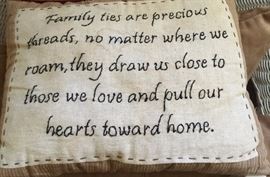 Family ties are precious
threads, no matter where we
roam, they draw us close to
those we love and pull our
hearts toward home.